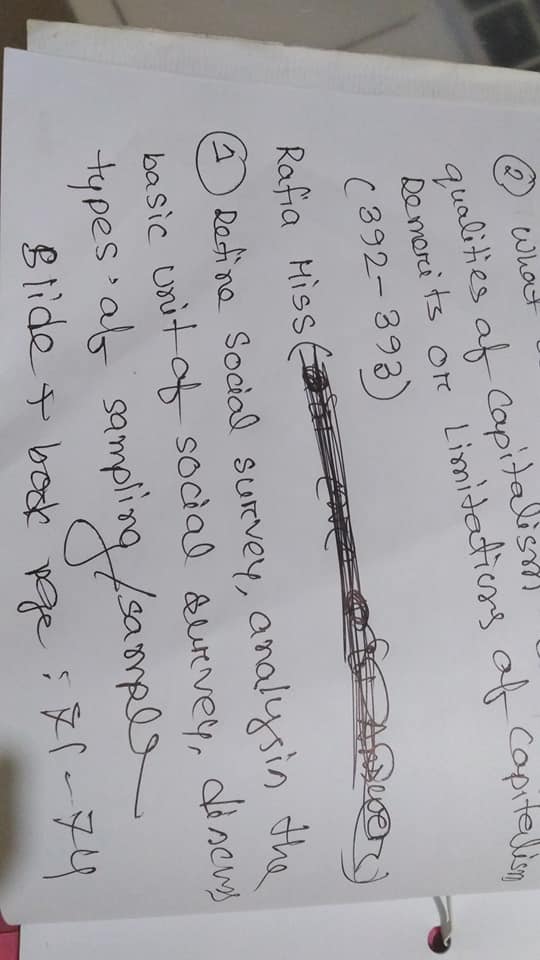 ② What
qualities of Capitalism
Demerits or Limitations of Capitalism
(392-393)
Rafia Miss ( Answer)
① Define Social survey, analysin the
basic unit of social survey, discuss
types of sampling/sample
Slide + book page : 71-74